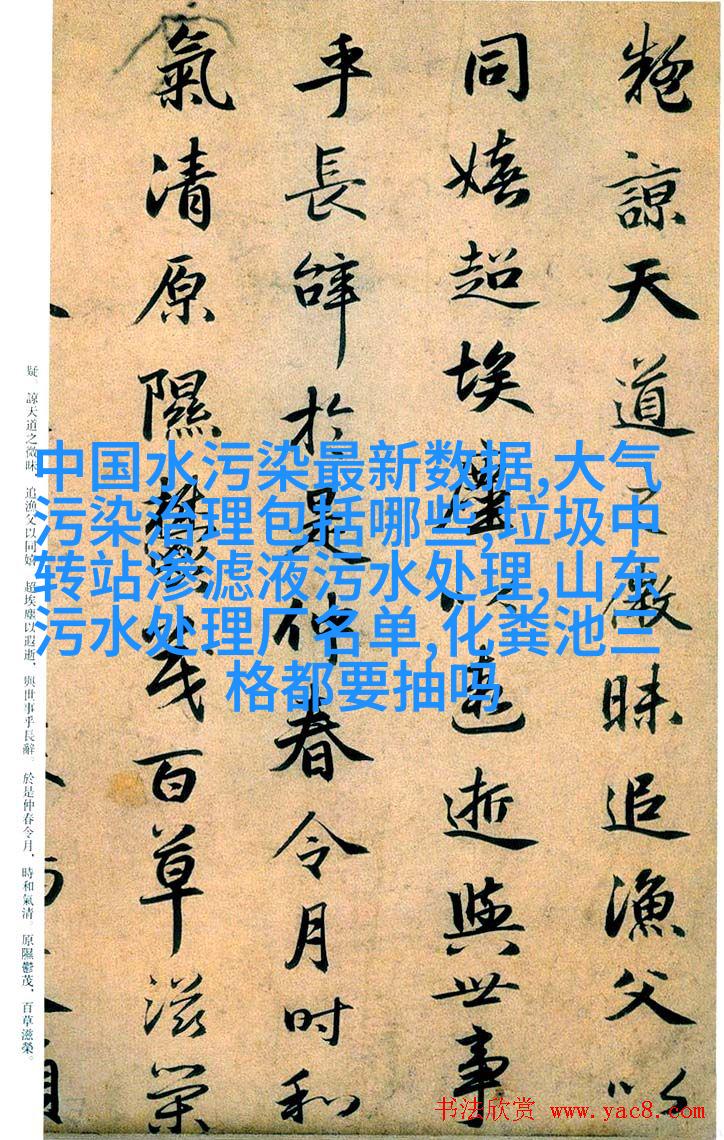 疑諒天道之微昧追漁父以
同嬉超埃塵以遐逝與世事
乎長辭於是仲春令月時和
氣清原隰鬱茂百草滋榮
疑。諒天道之微昧,追漁父以同嬉。超埃塵以遐逝,與世事乎長辭。於是仲春令月,時和氣清。原隰鬱茂,百草滋榮。
中国水污染最新数据,大气
污染治理包括哪些,垃圾中
转站渗滤液污水处理,山东
污水处理厂名单,化粪池三
格都要抽吗
书法欣赏 www.yac8.com